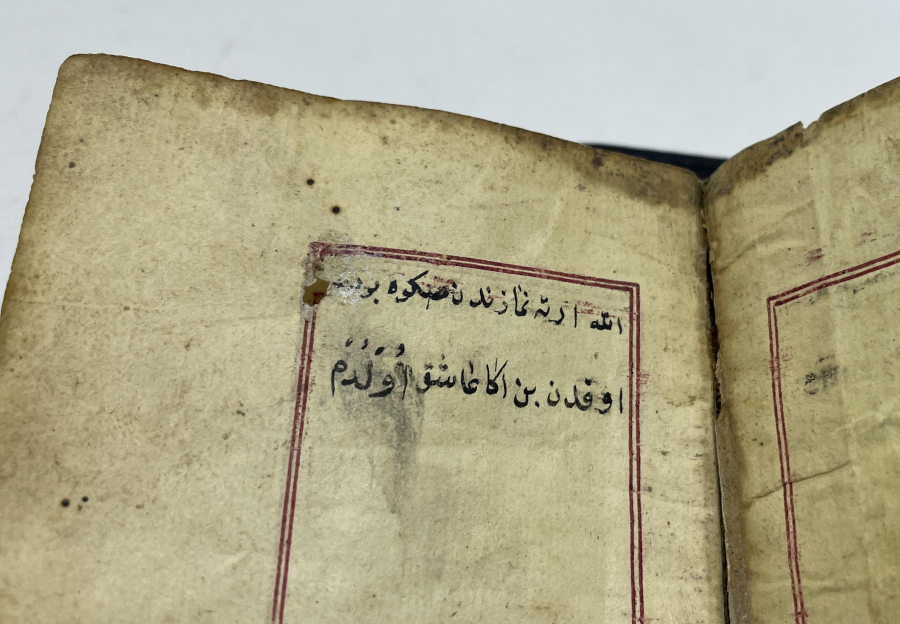 الله ارته نمازندن صكره بو
اوقدن بن اكا عاشق اُولَدُم